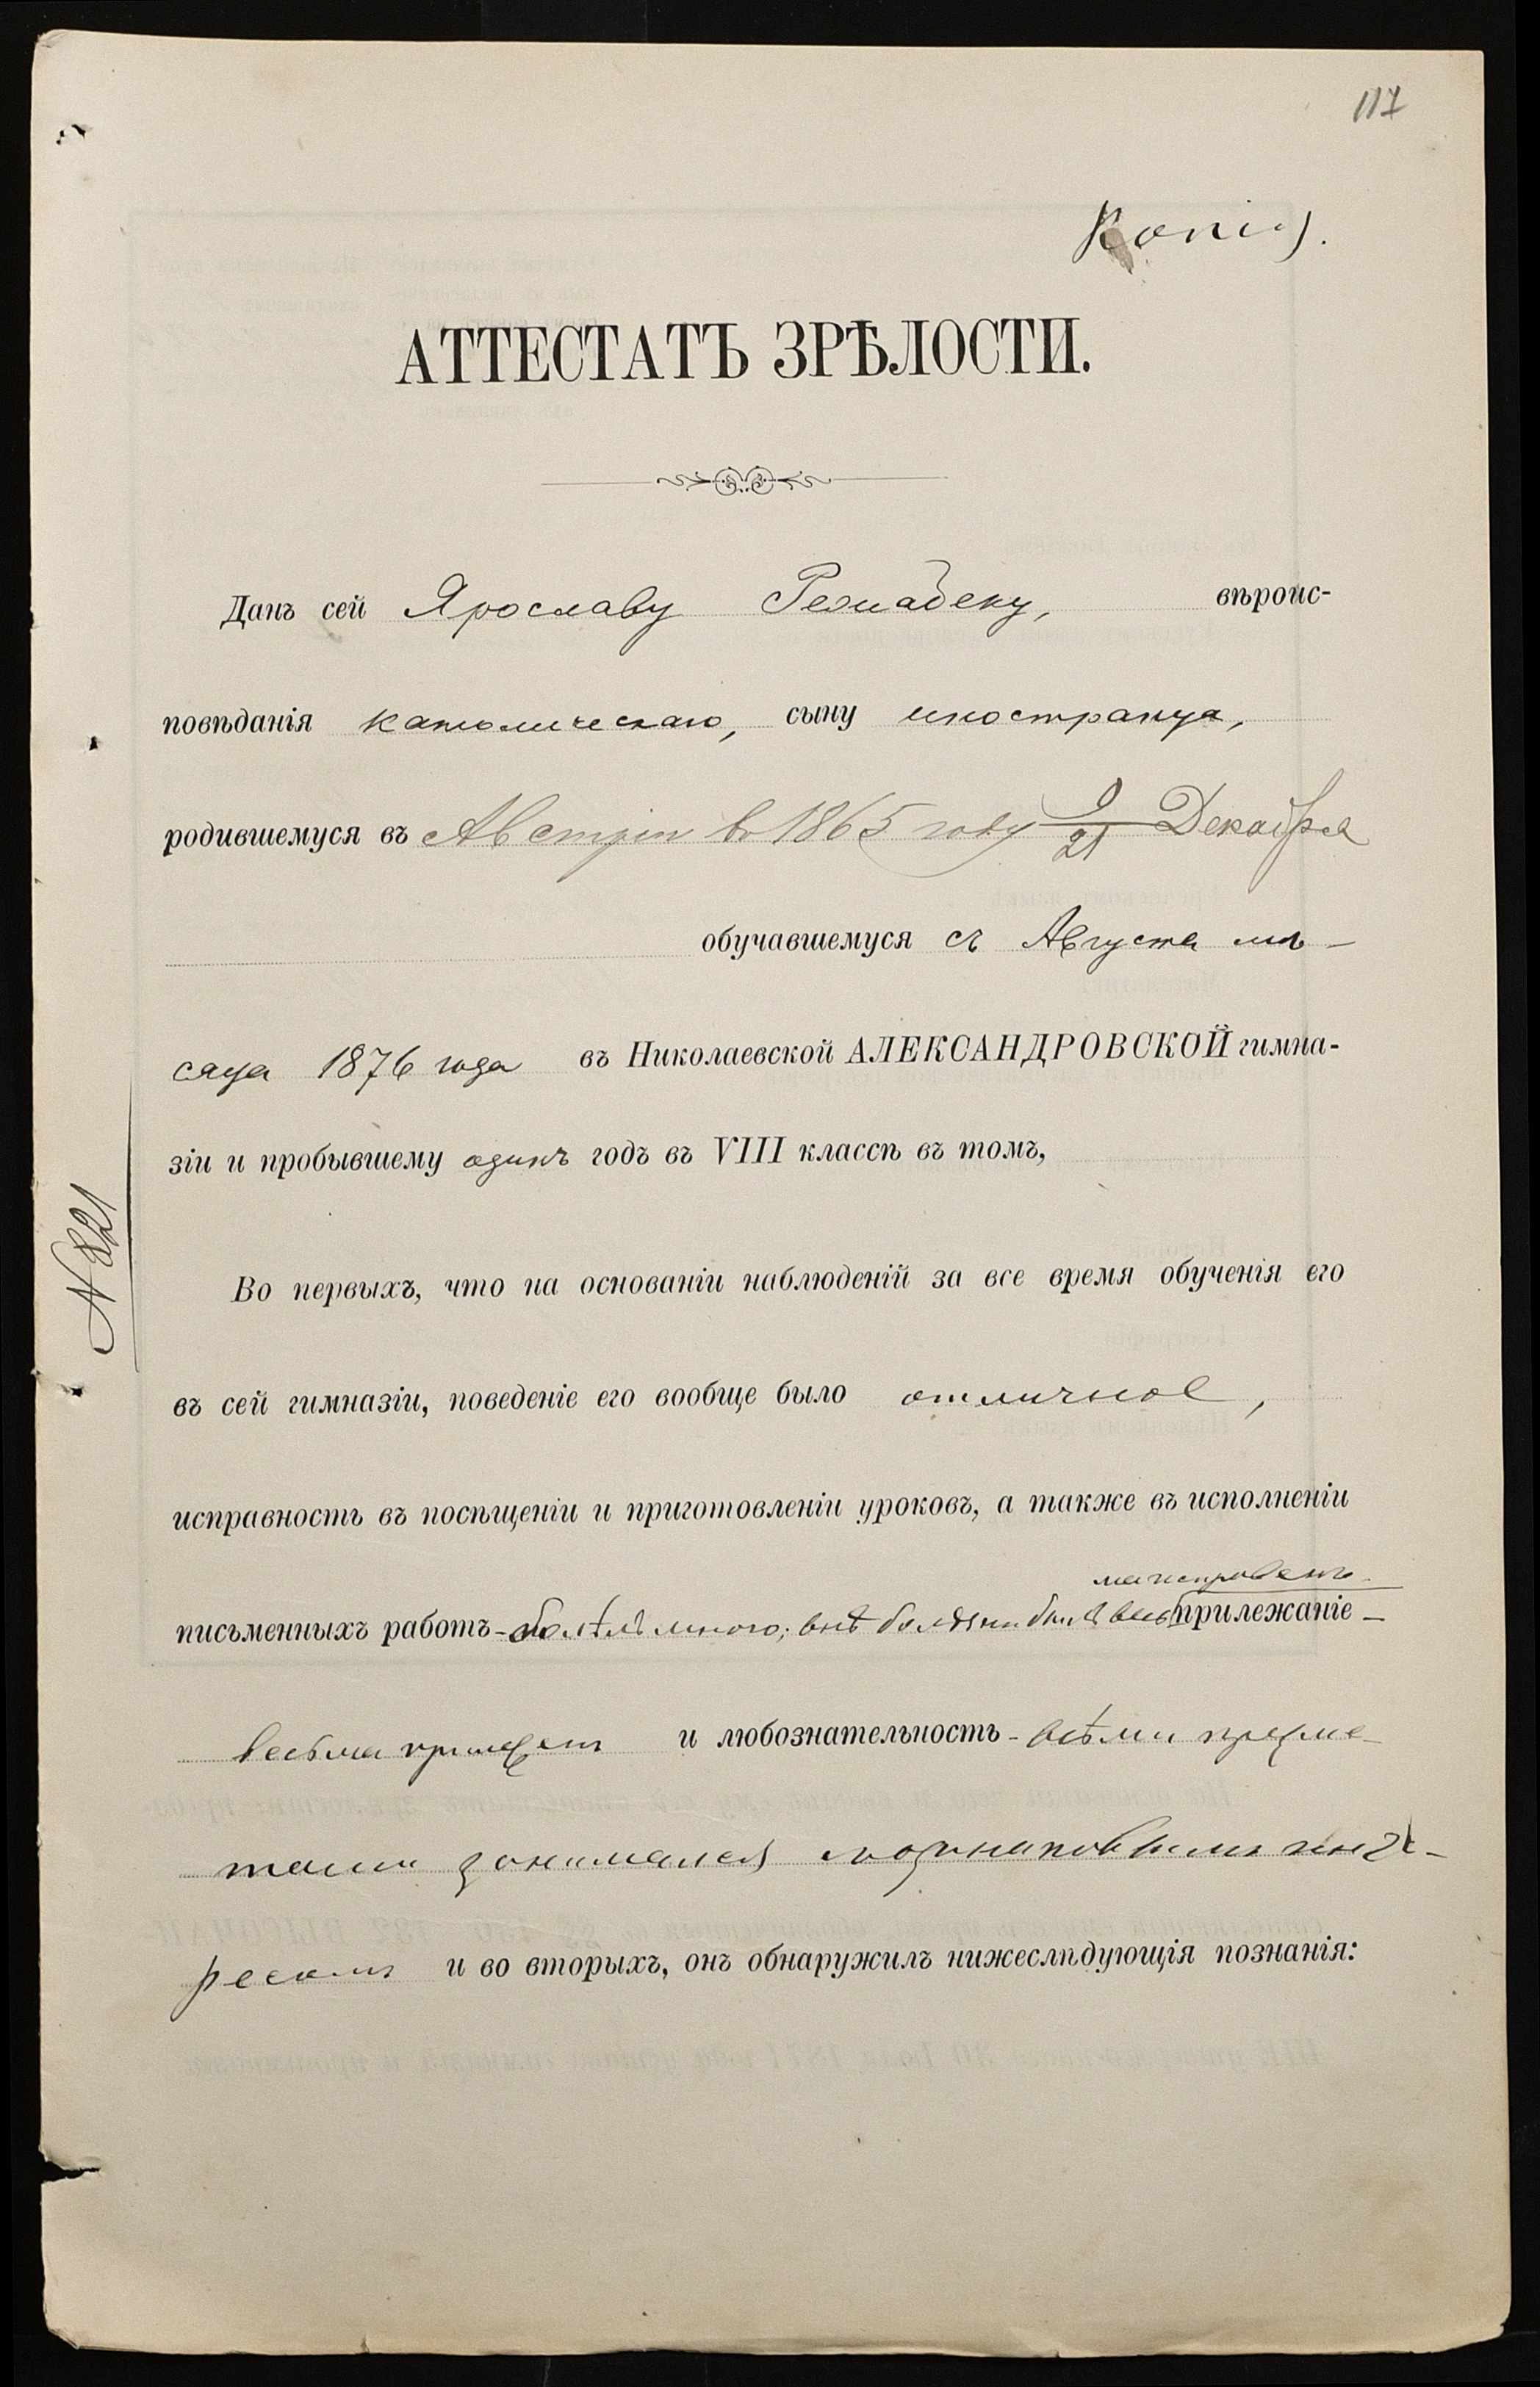 117
Копія.
АТТЕСТАТЪ ЗРѢЛОСТИ.
Данъ сей Ярославу вѣроис-
повѣданія католическаго, сыну иностранца,
родившемуся въ Австріи въ 1865 году 9/21 Декабря
обучавшемуся съ Августа мѣ-
сяца 1876 года въ Николаевской АЛЕКСАНДРОВСКОЙ гимна-
зіи и пробывшему одинъ годъ въ VIII классѣ въ томъ,
N 821
Во первыхъ, что на основаніи наблюденій за все время обученія его
въ сей гимназіи, поведеніе его вообще было отличное,
исправность въ посѣщеніи и приготовленіи уроковъ, а также въ исполненіи
ма исправенъ
письменныхъ работъ - болѣлъ много; внѣ болѣзни былъ весь прилежаніе -
весьма прилеженъ и любознательность - всѣми предме-
тами занимался съ одинаковымъ инте-
ресомъ и во вторыхъ, онъ обнаружилъ нижеслѣдующія познанія: